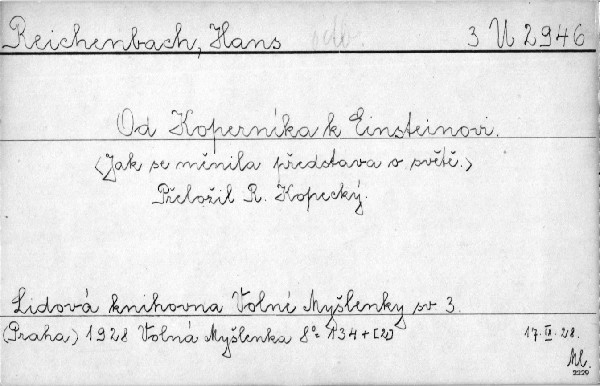 Reichenbach, Hans odb. 3 U 2946
Od Koperníka k Einsteinovi.
<Jak se měnila představa o světě.>
Přeložil R. Kopecký.
Lidová knihovna Volné Myšlenky sv 3.
(Praha) 1928 Volná Myšlenka 8° 134+[2]
17.IX.28.
2220